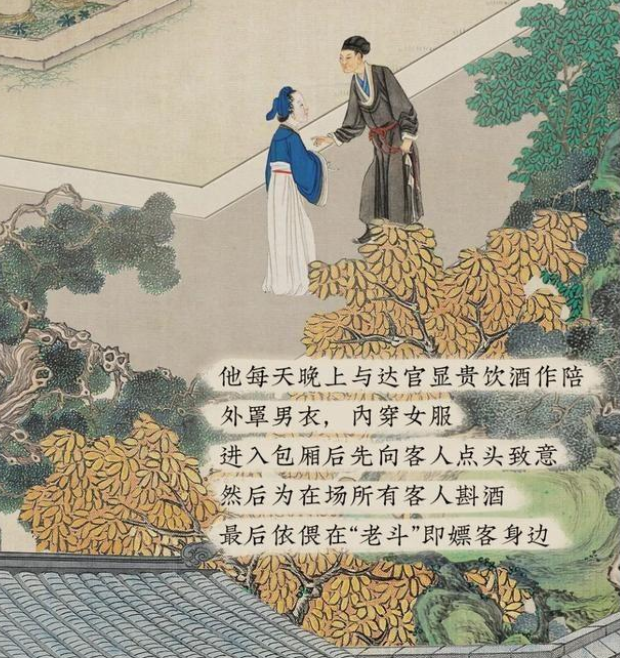 他每天晚上与达官显贵饮酒作陪
外罩男衣，內穿女服
进入包厢后先向客人点头致意
然后为在场所有客人斟酒
最后依偎在“老斗”即嫖客身边